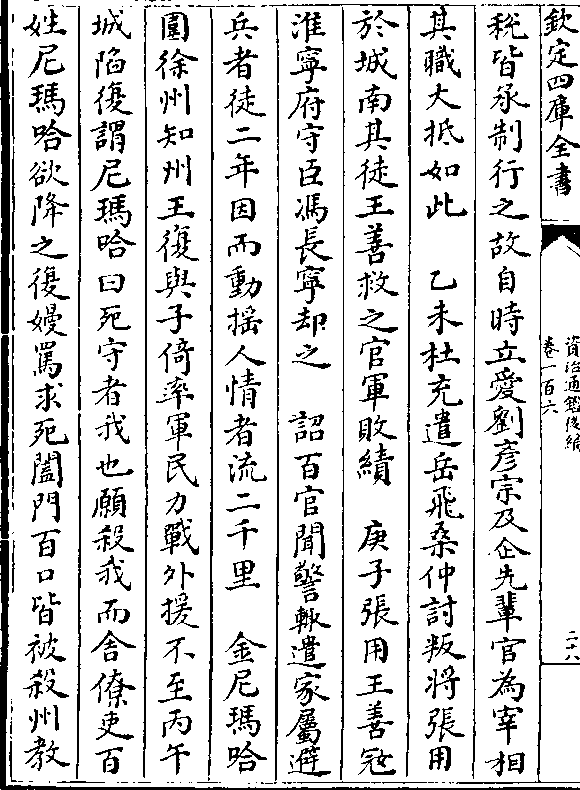 欽定四庫全書
資治通鑑後編
卷一百六
二十八
稅皆承制行之故自時立愛劉彥宗及企先輩官為宰相
其職大抵如此　乙未杜充遣岳飛桑仲討叛將張用
於城南其徒王善救之官軍敗績　庚子張用王善寇
淮寧府守臣馮長寧却之　詔百官聞警輙遣家屬避
兵者徒二年因而動揺人情者流二千里　金尼瑪哈
圍徐州知州王復與子倚率軍民力戰外援不至丙午
城陷復謂尼瑪哈曰死守者我也願殺我而舍僚吏百
姓尼瑪哈欲降之復嫚罵求死闔門百口皆被殺州教